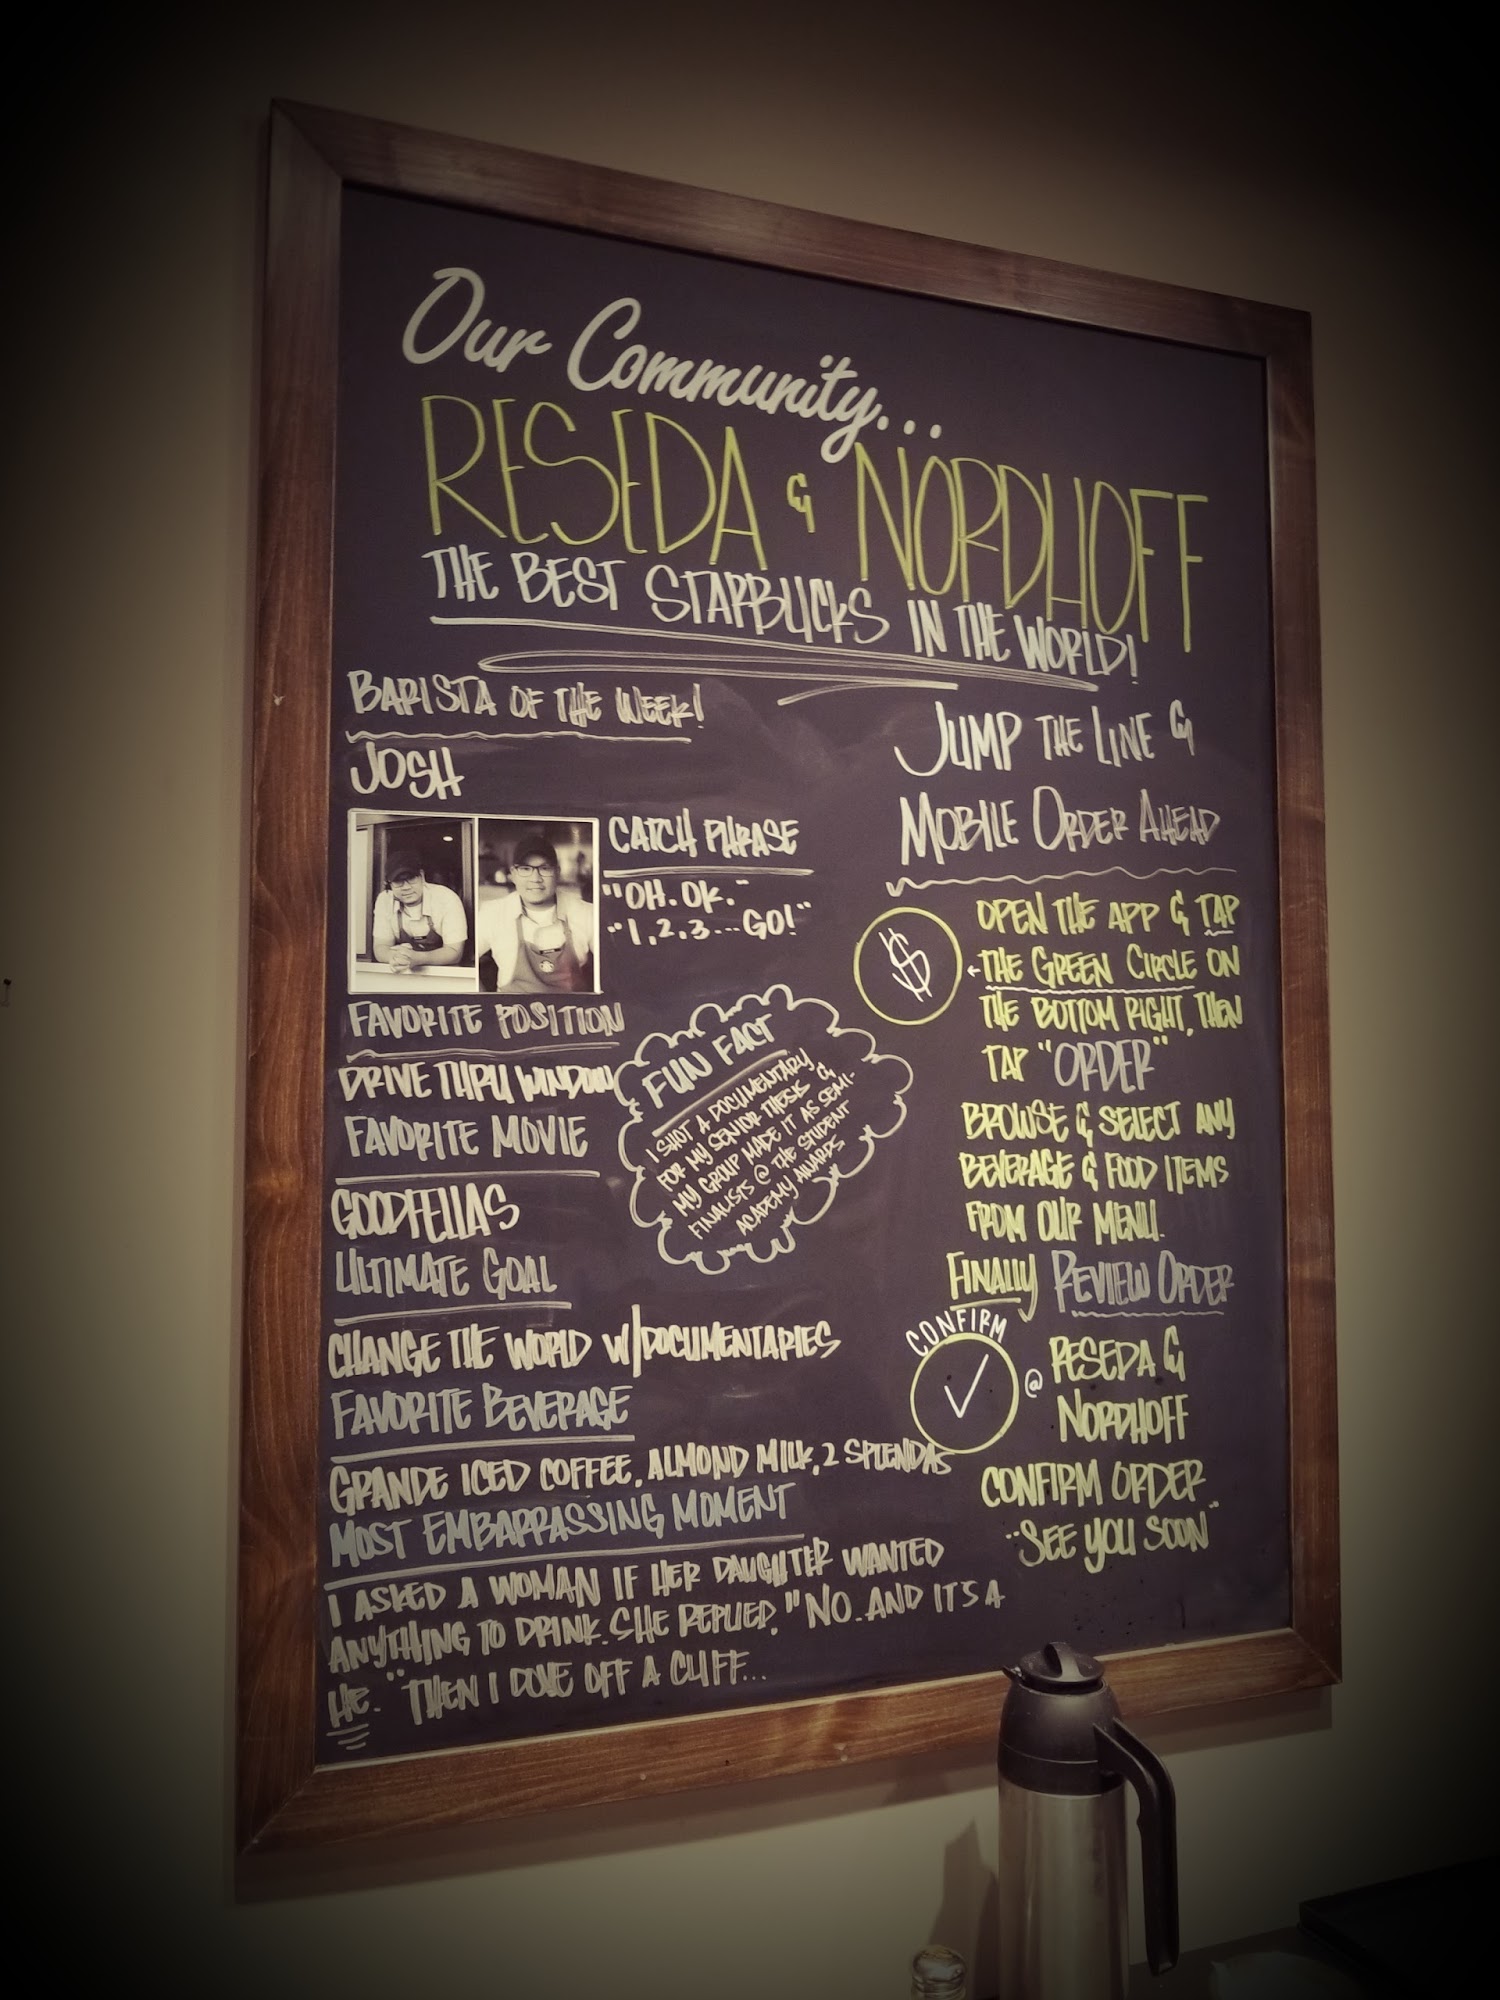 Our Community...
RESEDA & NORDHOFF
THE BEST STARBUCKS IN THE WORLD!
BARISTA OF THE WEEK!
JOSH
CATCH PHRASE
"OH. OK."
"1, 2, 3... GO!"
FAVORITE POSITION
DRIVE THRU WINDOW
FAVORITE MOVIE
GOODFELLAS
ULTIMATE GOAL
CHANGE THE WORLD W/DOCUMENTARIES
FAVORITE BEVERAGE
GRANDE ICED COFFEE, ALMOND MILK, 2 SPLENDAS
MOST EMBARRASSING MOMENT
I ASKED A WOMAN IF HER DAUGHTER WANTED
ANYTHING TO DRINK. SHE REPLIED, "NO. AND IT'S A
HE." THEN I DOVE OFF A CLIFF...
FUN FACT
I SHOT A DOCUMENTARY
FOR MY SENIOR THESIS &
MY GROUP MADE IT AS SEMI-
FINALISTS @ THE STUDENT
ACADEMY AWARDS
JUMP THE LINE &
MOBILE ORDER AHEAD
$
OPEN THE APP & TAP
THE GREEN CIRCLE ON
THE BOTTOM RIGHT, THEN
TAP "ORDER"
BROWSE & SELECT ANY
BEVERAGE & FOOD ITEMS
FROM OUR MENU.
FINALLY REVIEW ORDER
CONFIRM
@ RESEDA &
NORDHOFF
CONFIRM ORDER
"SEE YOU SOON"